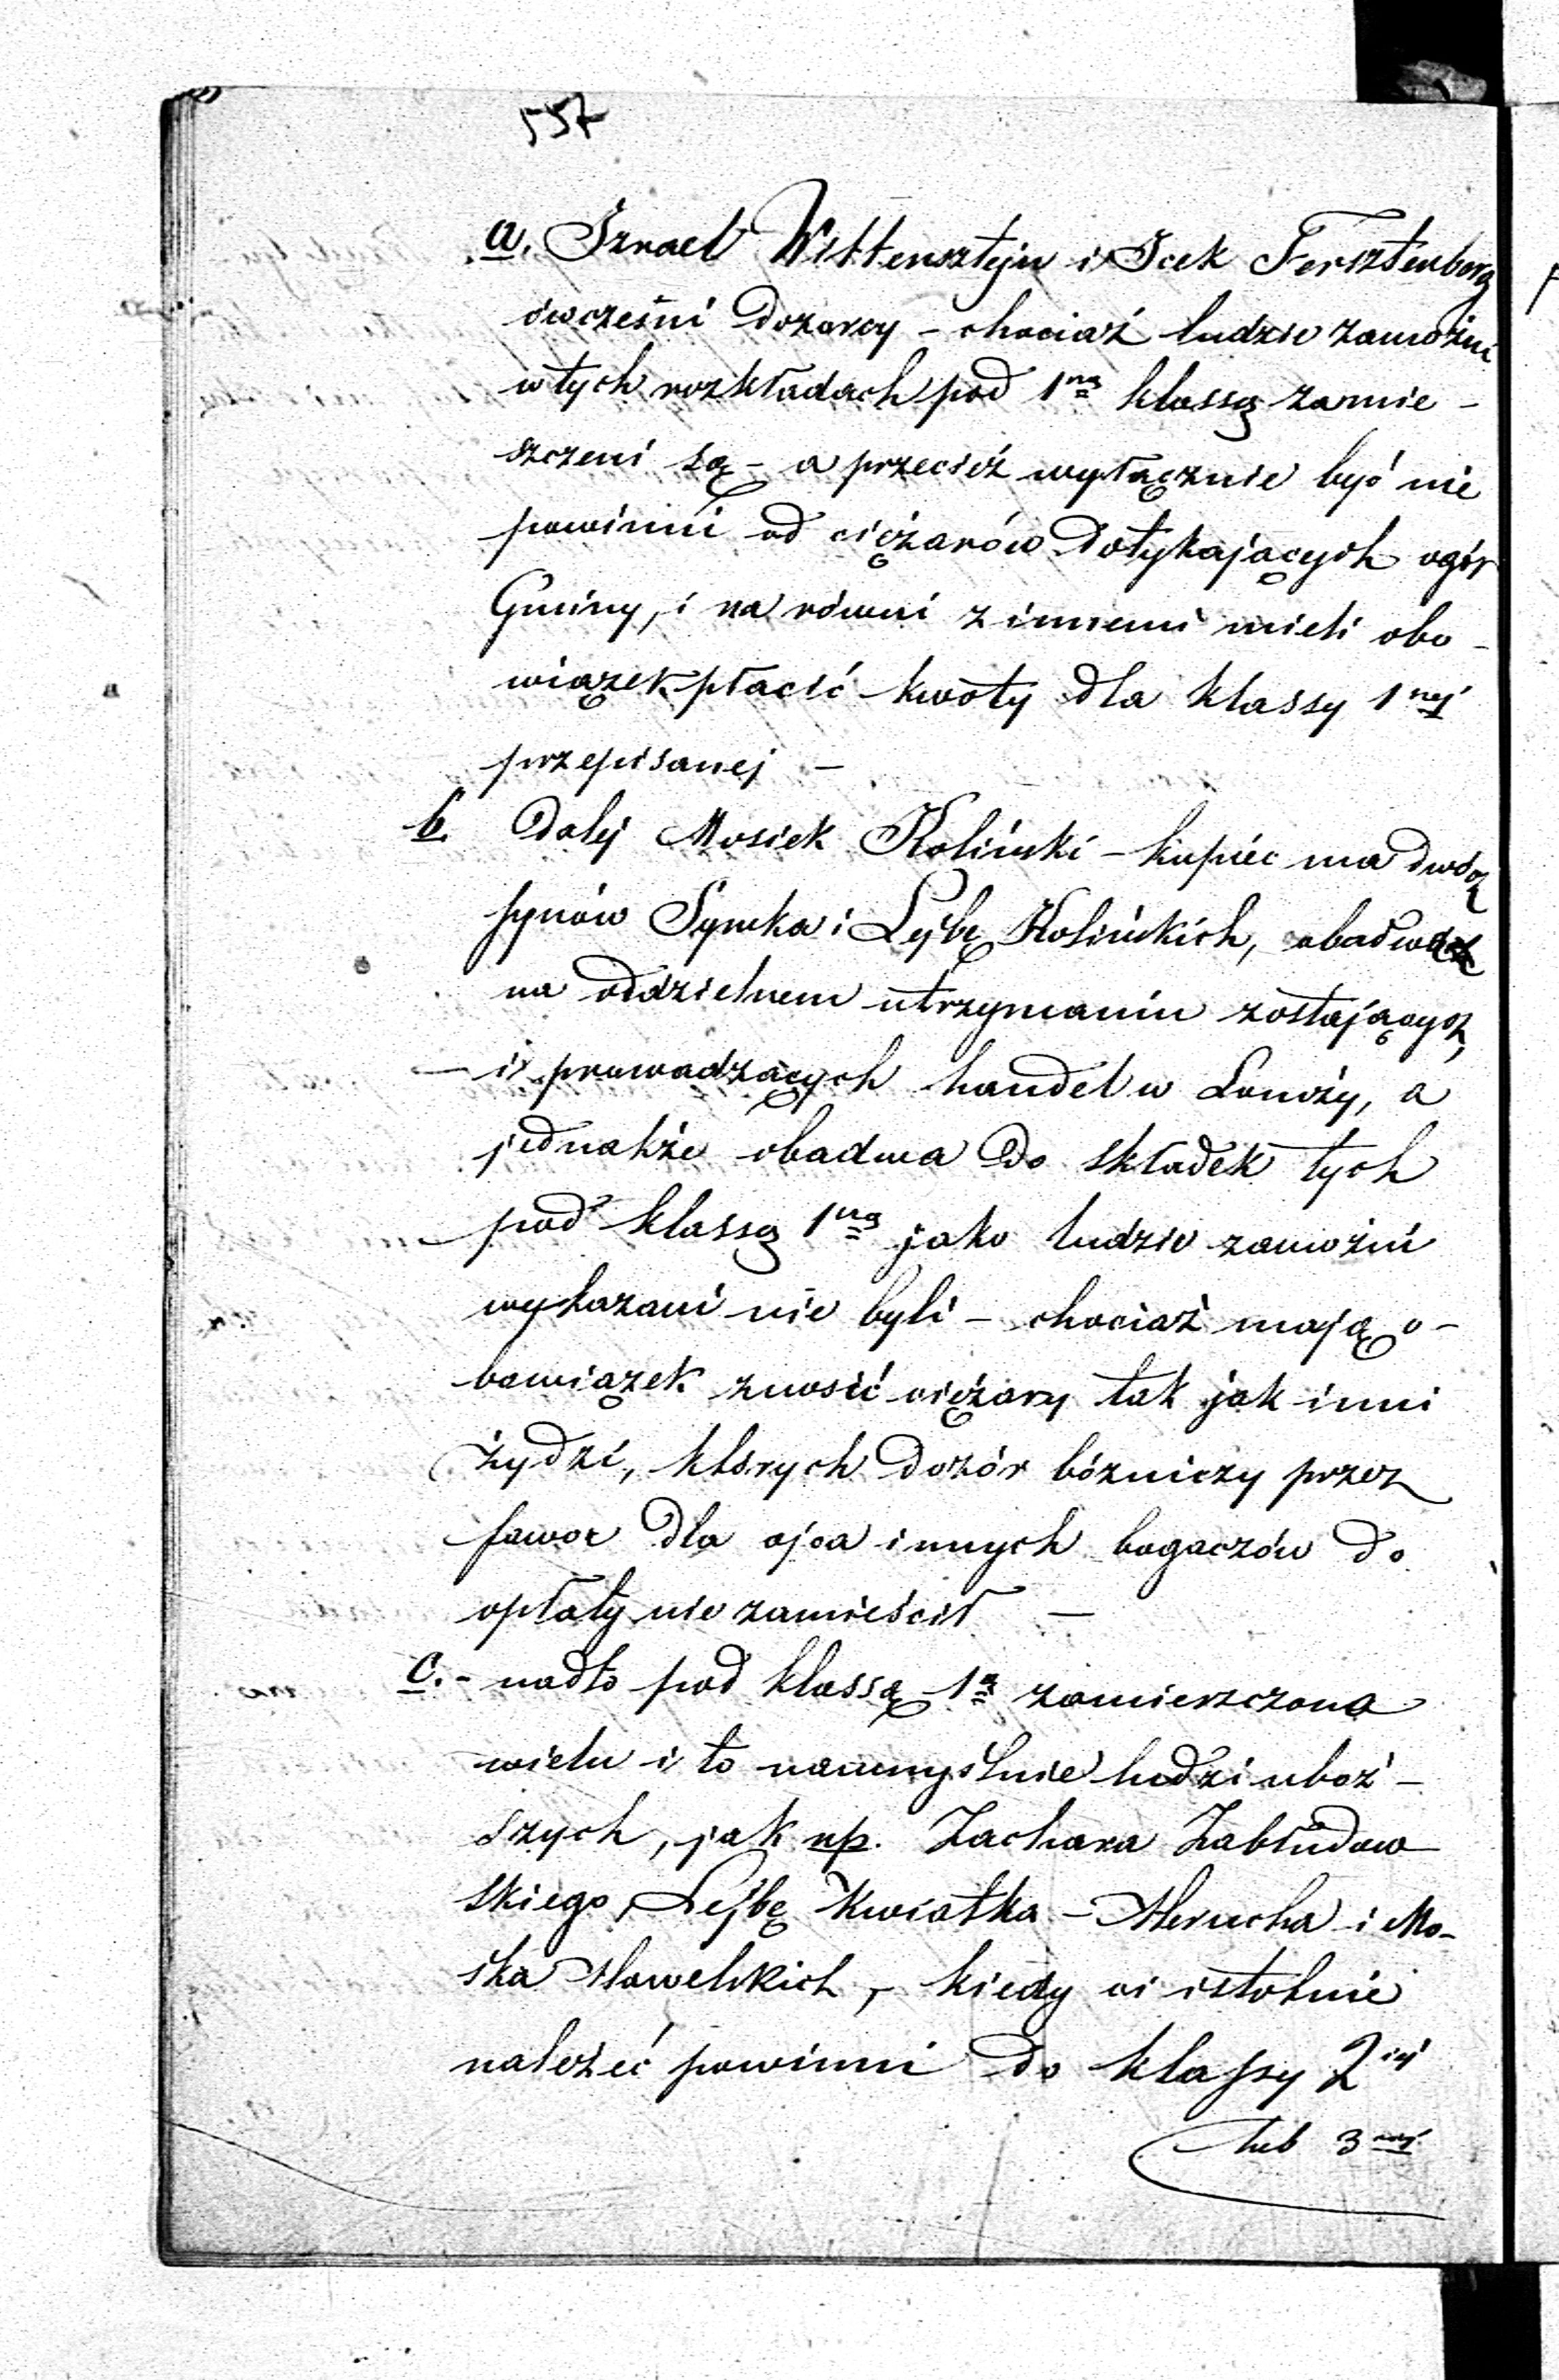 557
a. Izrael Wittensztejn i Icek Fersztenberg
ówcześni dozorcy – chociaż ludzie zamożni
w tych rozkładach pod 1ną klassą zamie-
szczeni są – a przecież wyłącznie być nie
powinni od ciężarów dotykających ogół
Gminy, i na równi z innemi mieli obo-
wiązek płacić kwoty dla klassy 1nej
przepisanej –
b. Dalej Mosiek Koliński – kupiec ma dwóch
synów Symcka i Lejbę Kolińskich, obadwóch
na oddzielnem utrzymaniu zostających,
i prowadzących handel w Łomży, a
jednakże obadwa do składek tych
pod klassą 1ną jako ludzie zamożni
wykazani nie byli – chociaż mają o-
bowiązek znosić ciężary tak jak inni
żydzi, których dozór bóżniczy przez
fawor dla ojca innych bogaczów do
opłaty nie zamieścił –
c. – nadto pod klassą 1ą zamieszczono
wielu i to naumyślnie ludzi uboż-
szych, jak np. Zachara Zabłudow
skiego, Lejbę Kwiatka – i Mo-
śka kiedy ci istotnie
należeć powinni do klassy 2iej
lub 3ciej